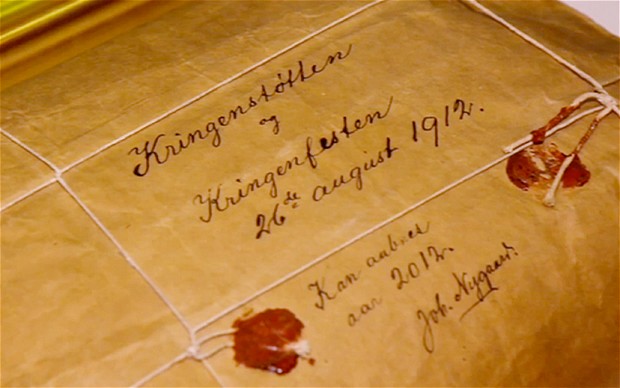 Kringenstøtten
og
Kringenfesten
26de august 1912.
Kan aabnes
aar 2012.
Joh. Nygaard.